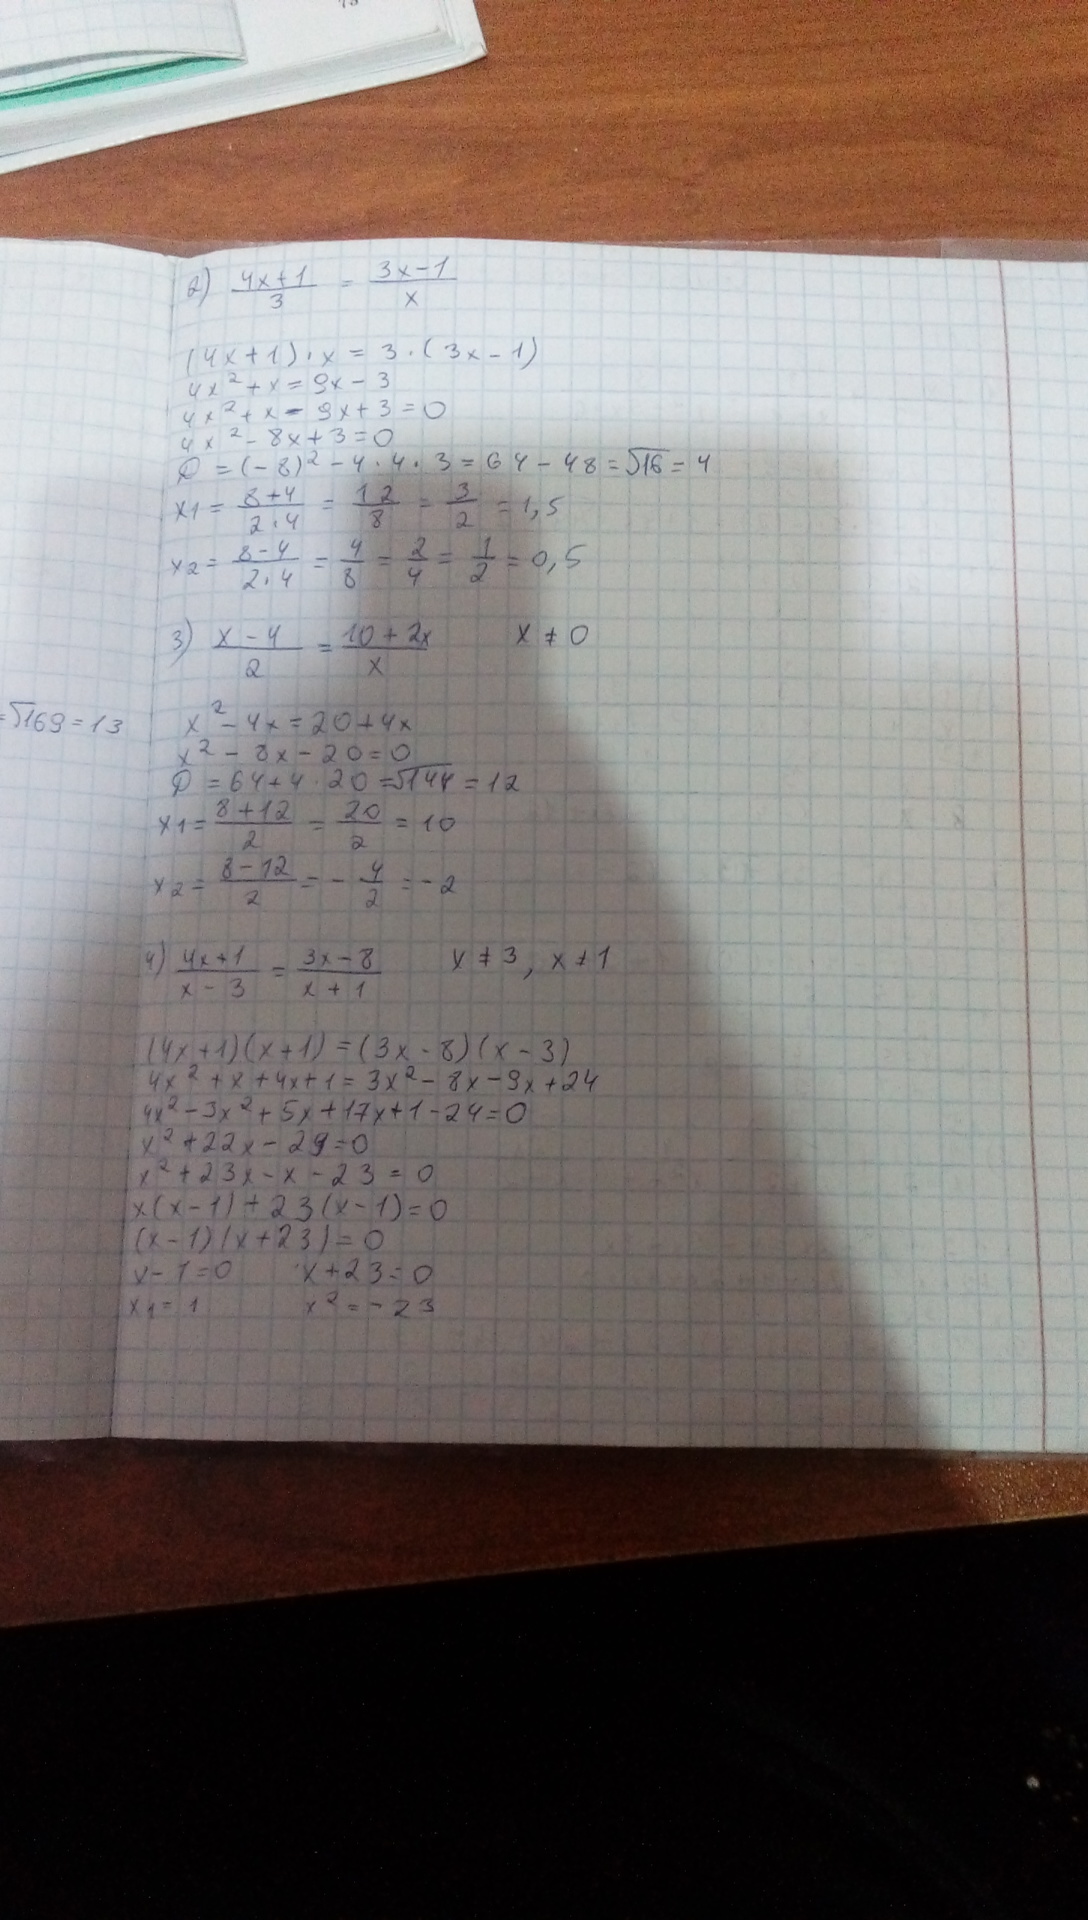 2) (4x+1)/3 = (3x-1)/x
(4x+1)·x = 3·(3x-1)
4x²+x=9x-3
4x²+x-9x+3=0
4x²-8x+3=0
D=(-8)²-4·4·3=64-48=√16=4
x1=(8+4)/(2·4)=12/8=3/2=1,5
x2=(8-4)/(2·4)=4/8=2/4=1/2=0,5
3) (x-4)/2=(10+2x)/x x≠0
=√169=13
x²-4x=20+4x
x²-8x-20=0
D=64+4·20=√144=12
x1=(8+12)/2=20/2=10
x2=(8-12)/2=-4/2=-2
4) (4x+1)/(x-3)=(3x-8)/(x+1) x≠3, x≠1
(4x+1)(x+1)=(3x-8)(x-3)
4x²+x+4x+1=3x²-8x-9x+24
4x²-3x²+5x+17x+1-24=0
x²+22x-29=0
x²+23x-x-23=0
x(x-1)+23(x-1)=0
(x-1)(x+23)=0
x-1=0 x+23=0
x1=1 x²=-23